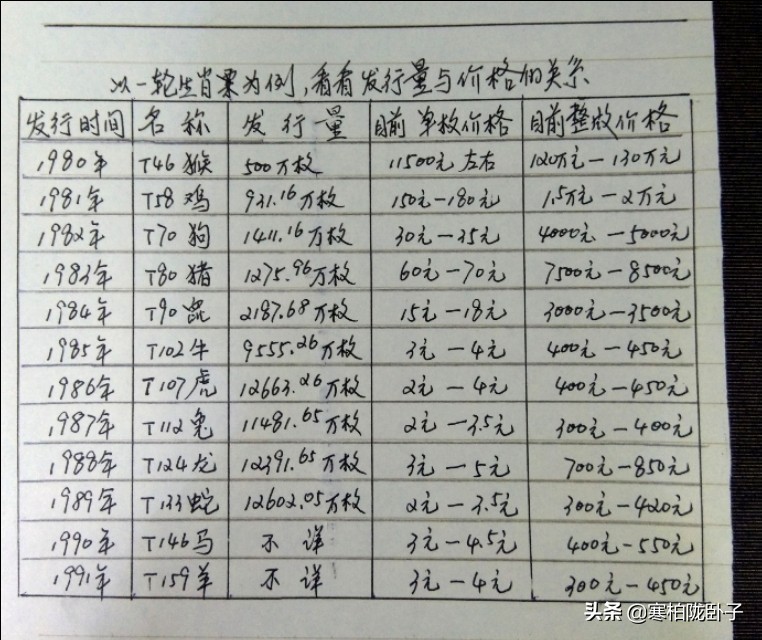 以一轮生肖票为例,看看发行量与价格的关系
发行时间 名称 发行量 目前单枚价格 目前整版价格
1980年 T46猴 500万枚 11500元左右 120万元—130万元
1981年 T58鸡 931.16万枚 150元—180元 1.5万元—2万元
1982年 T70狗 1411.16万枚 30元—35元 4000元—5000元
1983年 T80猪 1275.96万枚 60元—70元 7500元—8500元
1984年 T90鼠 2187.68万枚 15元—18元 3000元—3500元
1985年 T102牛 9555.26万枚 3元—4元 400元—450元
1986年 T107虎 12663.26万枚 2元—4元 400元—450元
1987年 T112兔 11481.65万枚 2元—3.5元 300元—400元
1988年 T124龙 12391.65万枚 3元—5元 700元—850元
1989年 T133蛇 12602.05万枚 2元—3.5元 300元—420元
1990年 T146马 不详 3元—4.5元 400元—550元
1991年 T159羊 不详 3元—4元 300元—450元
头条@寒柏陇卧子